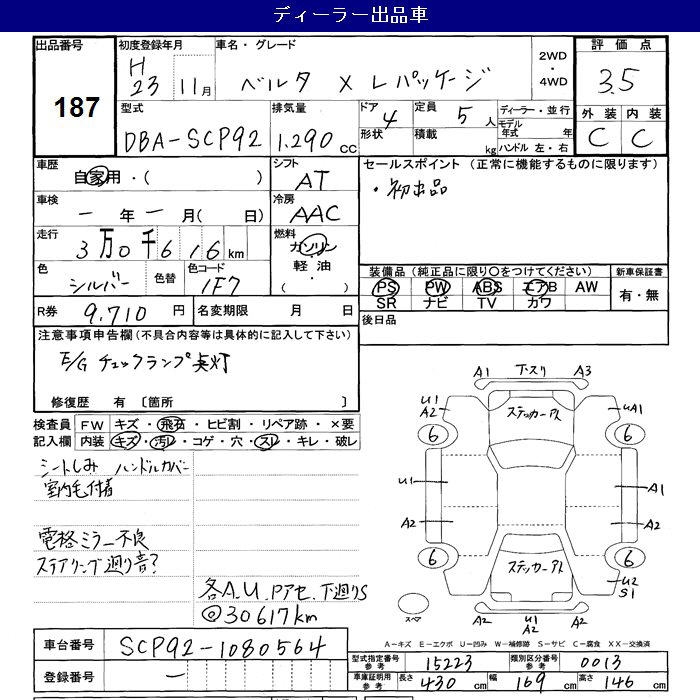 ディーラー出品車
出品番号 187
初度登録年月 H 23 11月
車名・グレード ベルタ X Lパッケージ
2WD・4WD
評価点 3.5
外装 内装
C C
型式 DBA-SCP92
排気量 1.290 cc
ドア 4 形状
定員 5人 積載 kg
ディーラー・並行
モデル年式 年
ハンドル 左・右
車歴 自家用・( )
シフト AT
車検 一年一月( 日)
冷房 AAC
走行 3万0千616km
燃料 ガソリン
軽油・
( )
色 シルバー 色替 色コード 1F7
R券 9.710円 名変期限 月 日
セールスポイント (正常に機能するものに限ります)
・初出品
装備品 (純正品に限り○をつけてください) 新車保証書
PS PW ABS エアB AW
SR ナビ TV カワ
有・無
後日品
注意事項申告欄(不具合内容等は具体的に記入して下さい)
E/G チェックランプ点灯
修復歴 有 〔箇所 〕
検査員 FW キズ・飛石・ヒビ割・リペア跡・×要
記入欄 内装 キズ・汚レ・コゲ・穴・スレ・キレ・破レ
シートしみ ハンドルカバー
室内毛付着
電格ミラー不良
ステアリング廻り音?
各A.U.Pアセ.下廻りS
◎30617km
A1 下スリ A3
U1 A2 ステッカーアト UA1
6 6
U1 A1
A2 A2
6 6
ステッカーアト U2 S1
スペア A2 U1 A2 A2
A-キズ E-エクボ U-凹み W-補修跡 S-サビ C-腐食 XX-交換済
車台番号 SCP92-1080564
登録番号 一
型式指定番号 参考 15223 類別区分番号 参考 0013
車庫証明用 参考 長さ 430cm 幅 169cm 高さ 146cm